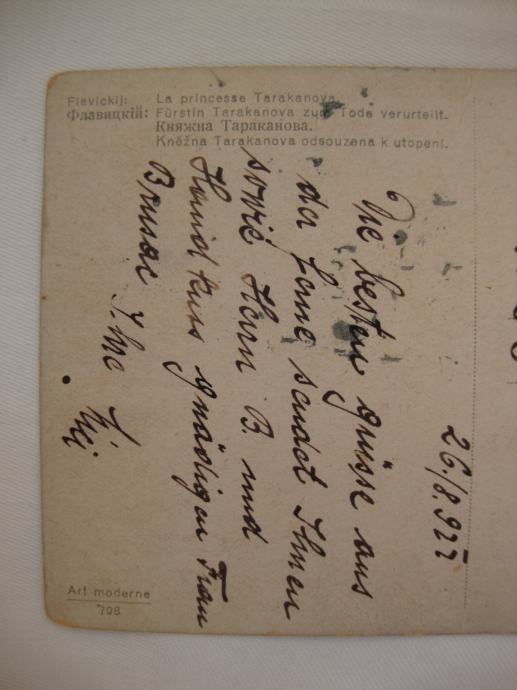 Flevickij: La princesse Tarakanova.
Флавицкій: Fürstin Tarakanova zum Tode verurteilt.
Княжна Тараканова.
Kněžna Tarakanova odsouzena k utopení.
26./8. 922
Die besten grüsse aus
der ferne sendet Ihnen
sowie Herrn B. und
Handkuss gnädigen Frau
Ihre
Art moderne
708